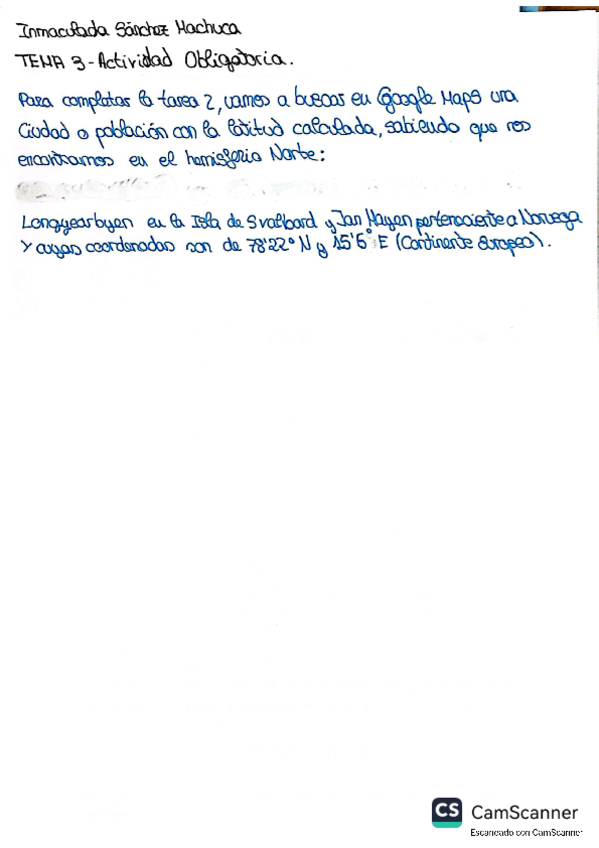 Inmaculada Sánchez Machuca
TEMA 3 - Actividad Obligatoria.
Para completar la tarea 2, vamos a buscar en Google Maps una
Ciudad o población con la latitud calculada, sabiendo que nos
encontramos en el hemisferio Norte:
Longyearbyen en la Isla de Svalbard y Jan Mayen perteneciente a Noruega
y cuyas coordenadas son de 78'22° N y 15'6° E (Continente Europeo).
CS CamScanner
Escaneado con CamScanner